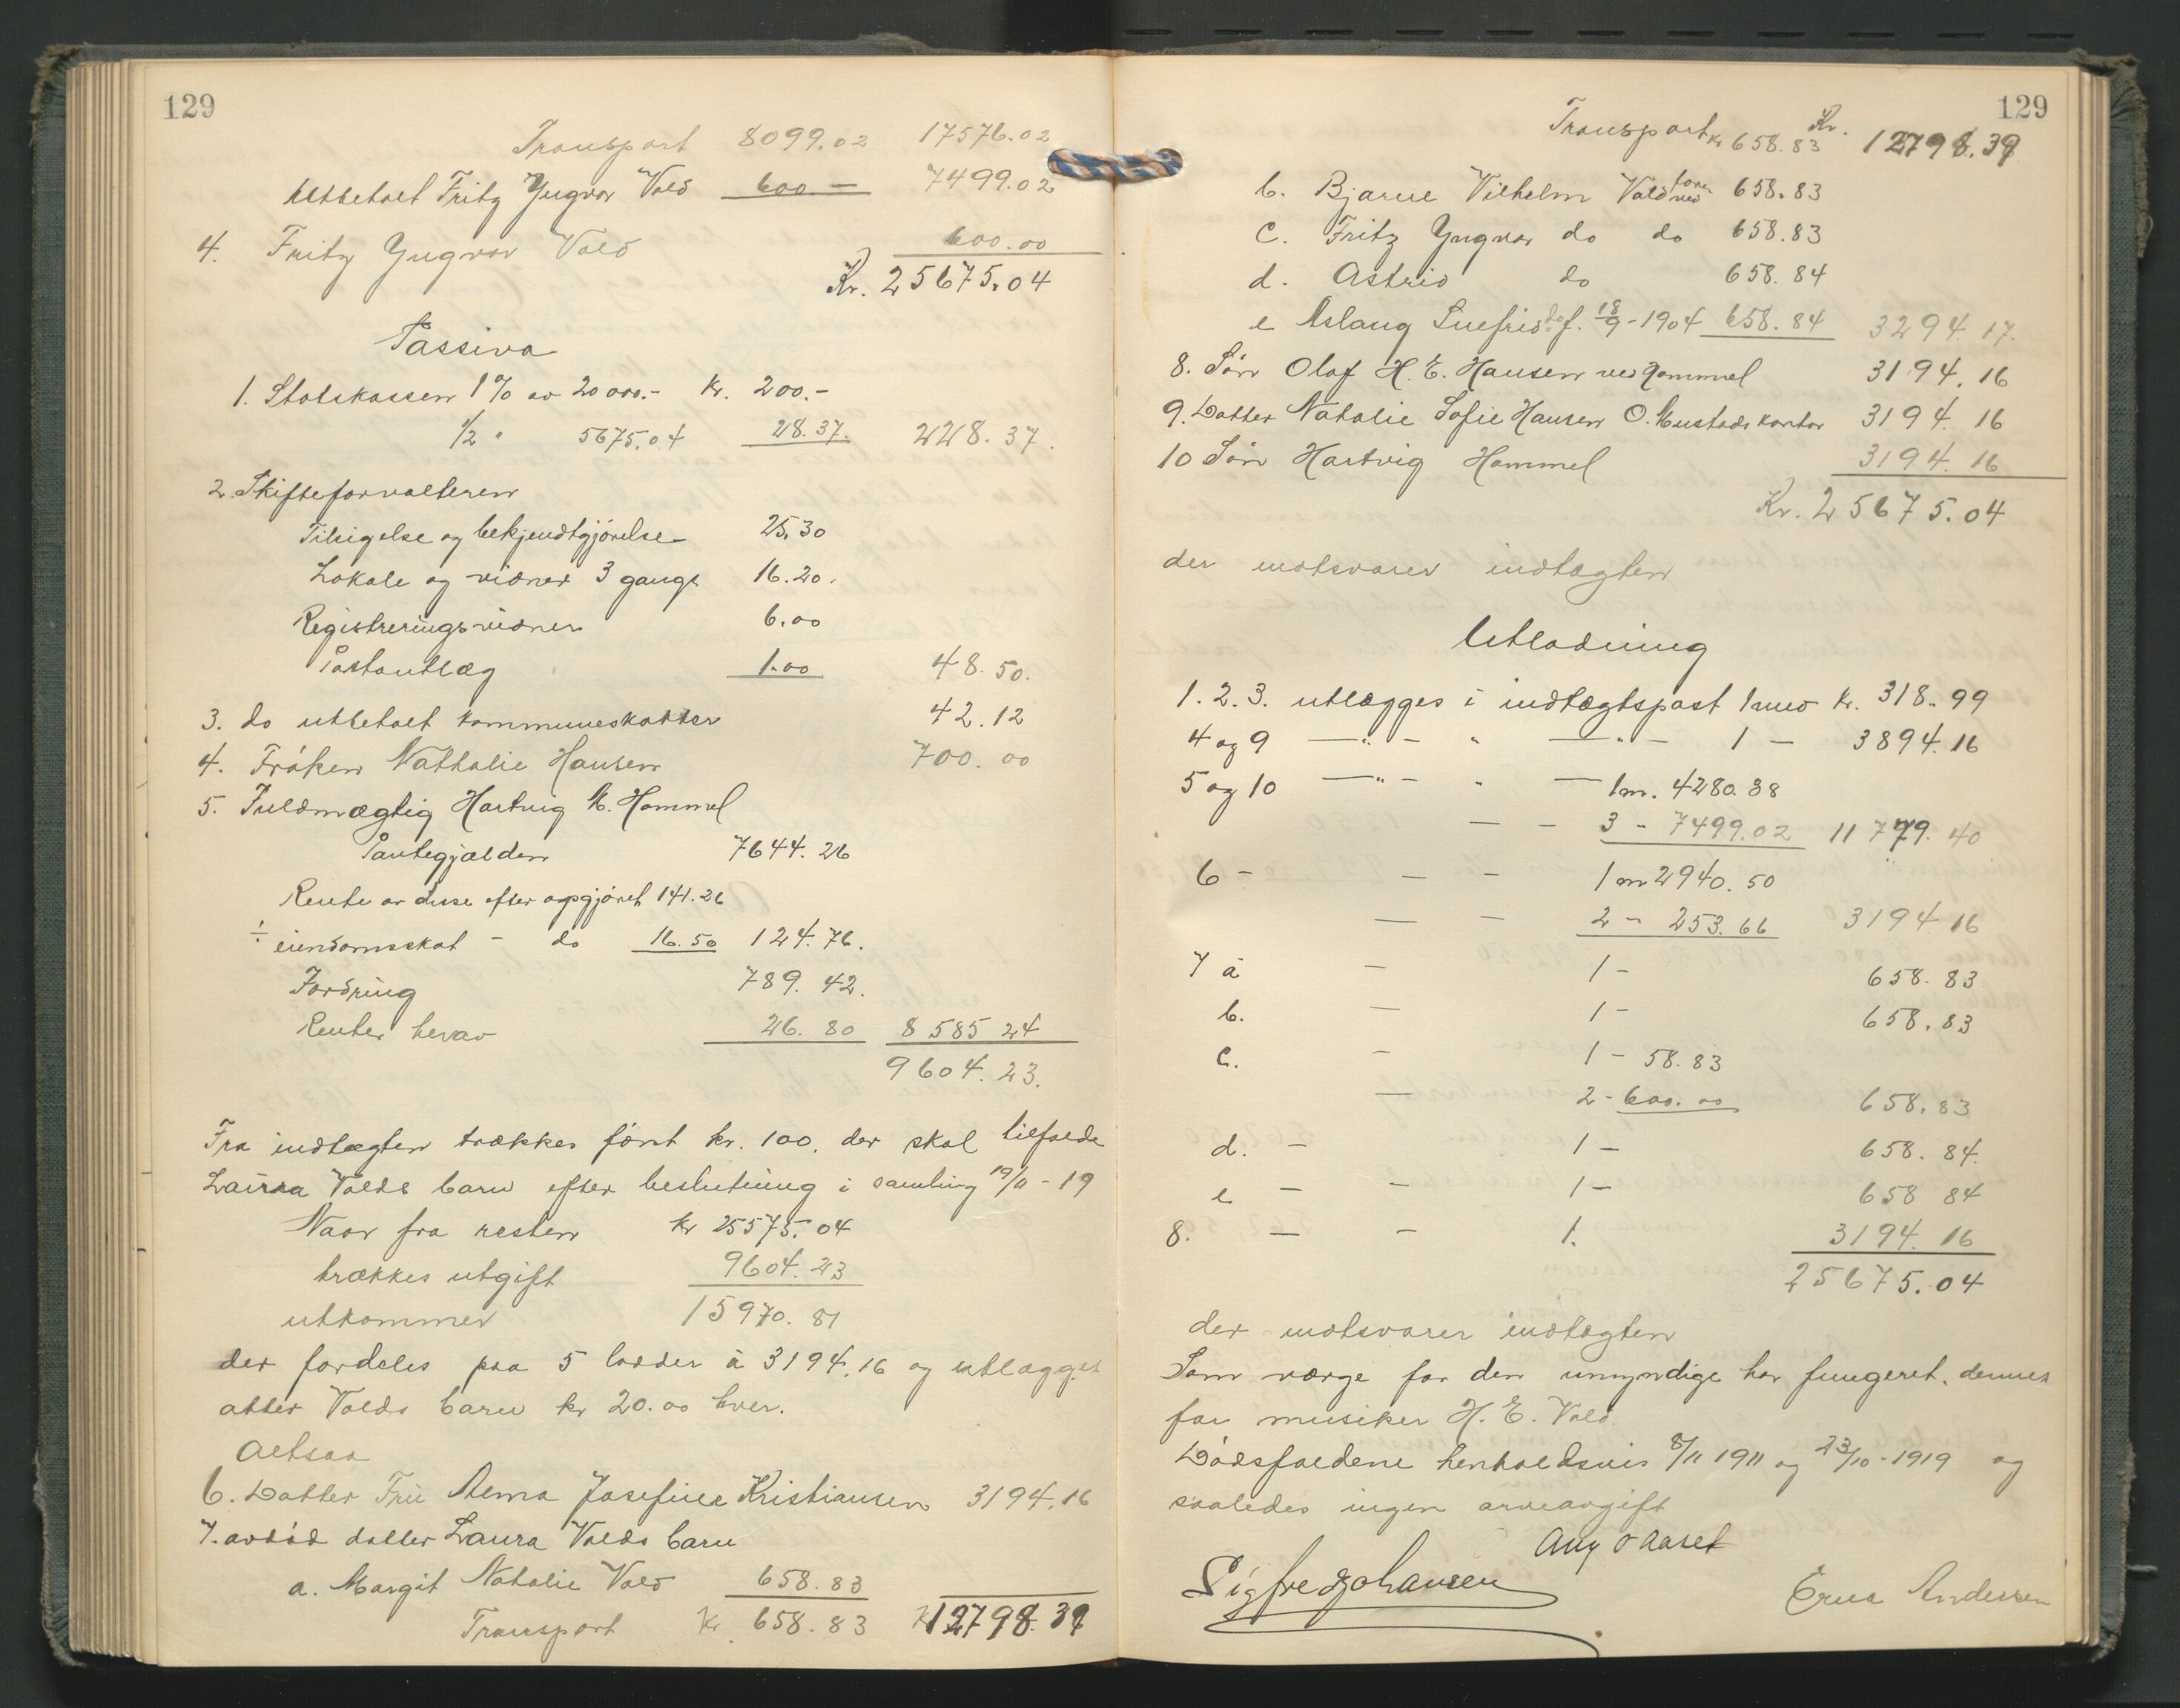 129
Transport 8099.02 17576.02
Utbetalt Fritz Yngvar Vold 600.— 7499.02
4. Fritz Yngvar Vold 600.00
Kr. 25675.04
Passiva
1. Statskassen 1% av 20000.- kr. 200.-
1/2 " 5675.04 28.37. 228.37.
2. Skifteforvalteren
Tilsigelse og bekjendtgjørelse 25.30
Lokale og vidner 3 gange 16.20.
Registreringsvidner 6.00
Portoutlæg 1.00 48.50.
3. do utbetalt kommuneskatter 42.12
4. Frøken Nathalie Hansen 700.00
5. Fuldmægtig Hartvig M. Hammel
Pantegjælden 7644.26
Rente av disse efter opgjøret 141.26
÷ eiendomsskat - do 16.50 124.76.
Fordring 789.42.
Renter herav 26.80 8585 24
9604.23.
Fra indtægten trækkes først kr. 100. der skal tilfalde
Laura Volds barn efter beslutning i samling 19/11-19
Naar fra resten kr 25575.04
trækkes utgift 9604.23
utkommer 15970.81
der fordeles paa 5 lodder à 3194.16 og utlægges
atter Volds barn kr 20.00 hver.
Altsaa
6. Datter Fru Anna Josefine Kristiansen 3194.16
7. avdød datter Laura Volds barn
a. Margit Natalie Vold 658.83
Transport Kr. 658.83 K 12798.39
129
Transport Kr 658.83 Kr. 12798.39
b. Bjarne Vilhelm Vold ved 658.83
c. Fritz Yngvar do do 658.83
d. Astrid do 658.84
e Aslaug Snefrid do f. 18/9-1904 658.84 3294.17.
8. Søn Olaf H. E. Hansen ved Hammel 3194.16
9. Datter Natalie Sofie Hansen O. Mustads kontor 3194.16
10 Søn Hartvig Hammel 3194.16
Kr. 25675.04
der motsvarer indtægten
Utlodning
1. 2. 3. utlægges i indtægtspost 1 med kr. 318.99
4 og 9 —"— " —"— 1 — 3894.16
5 og 10 —"— " — 1 m. 4280.38
— - 3 - 7499.02 11779.40
6 - — - 1 m 2940.50
— - 2 - 253.66 3194 16
7 a — 1 - 658.83
b. — 1 - 658.83
c. - 1 - 58.83
— 2 - 600.00 658.83
d. - 1 — 658.84.
e — - 1 - 658 84
8. — - 1. 3194.16
25675.04
der motsvarer indtægten
Som værge for den umyndige har fungeret dennes
far musiker H. E. Vold.
Dødsfaldene henholdsvis 8/11 1911 og 23/10-1919 og
saaledes ingen arveavgift
Aug O Aaset
Sigfred Johansen
Erna Andersen